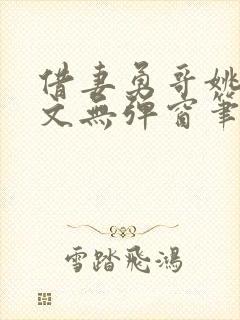 借妻勇哥姚
文無彈窗筆
雪踏飛鴻